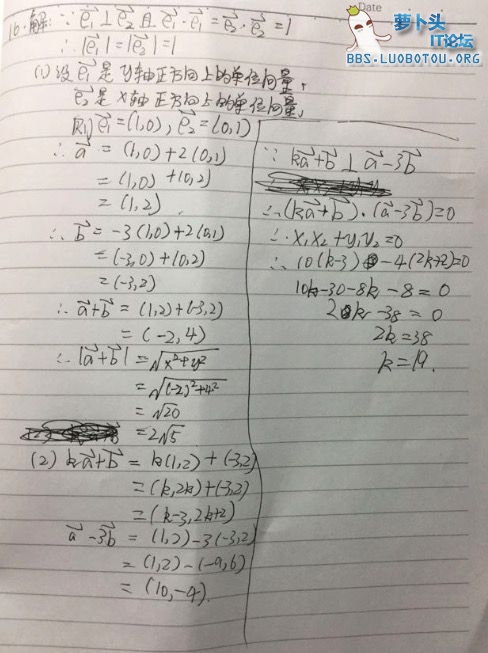 Date
萝卜头
IT论坛
BBS.LUOBOTOU.ORG
16.解: ∵ e₁⃗ ⊥ e₂⃗ 且 e₁⃗ · e₁⃗ = e₂⃗ · e₂⃗ = 1
∴ |e₁⃗| = |e₂⃗| = 1
(1) 设 e₁⃗ 是 y轴正方向上的单位向量,
e₂⃗ 是 x轴正方向上的单位向量,
则 e₁⃗ = (1,0), e₂⃗ = (0,1)
∴ a⃗ = (1,0)+2(0,1)
= (1,0)+(0,2)
= (1,2)
∴ b⃗ = -3(1,0)+2(0,1)
= (-3,0)+(0,2)
= (-3,2)
∴ a⃗+b⃗ = (1,2)+(-3,2)
= (-2,4)
∴ |a⃗+b⃗| = √x²+y²
= √(-2)²+4²
= √20
= 2√5
(2) ka⃗+b⃗ = k(1,2)+(-3,2)
= (k,2k)+(-3,2)
= (k-3,2k+2)
a⃗-3b⃗ = (1,2)-3(-3,2)
= (1,2)-(-9,6)
= (10,-4).
∵ ka⃗+b⃗ ⊥ a⃗-3b⃗
∴ (ka⃗+b⃗)·(a⃗-3b⃗)=0
∴ x₁x₂+y₁y₂=0
∴ 10(k-3)-4(2k+2)=0
10k-30-8k-8=0
2k-38=0
2k=38
k=19.